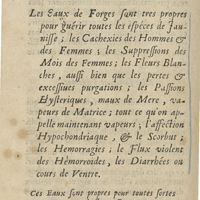 Les Eaux de Forges sont tres propres
pour guérir toutes les espéces de Jau-
nisse ; les Cachexies des Hommes &
des Femmes ; les Suppressions des
Mois des Femmes ; les Fleurs Blan-
ches, aussi bien que les pertes &
excessives purgations ; les Passions
Hysteriques, maux de Mere, va-
peurs de Matrice ; tout ce qu'on ap-
pelle maintenant vapeurs ; l'affection
Hypochondriaque, & le Scorbut ;
les Hemorragies ; le Flux violent
des Hémorroides, les Diarrhées ou
cours de Ventre.
Ces Eaux sont propres pour toutes sortes